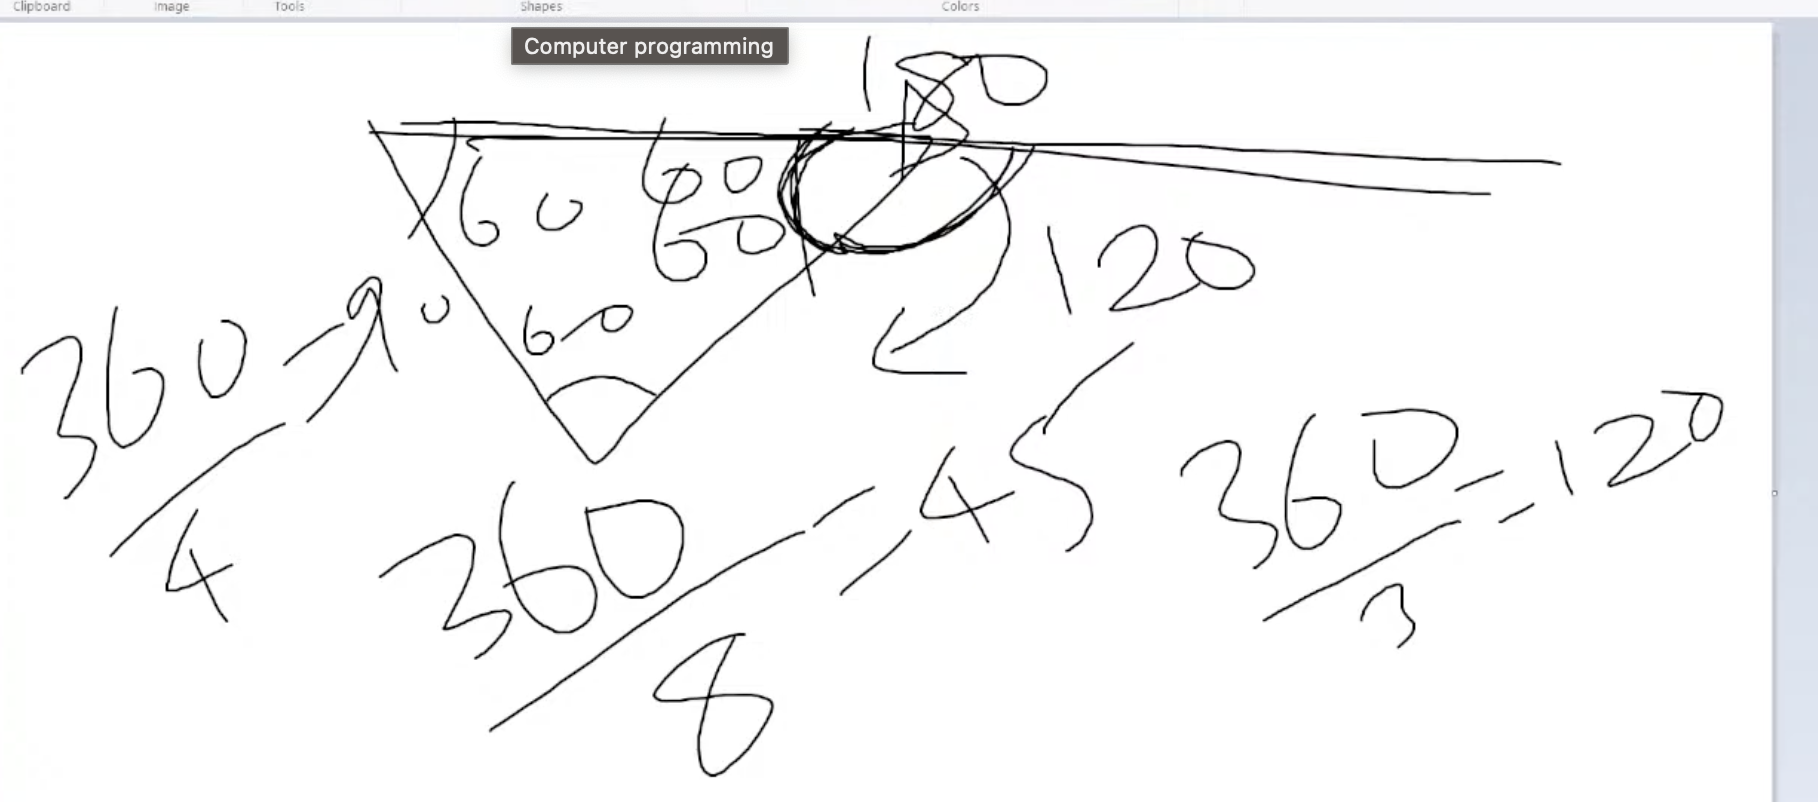 Clipboard Image Tools Shapes Colors
Computer programming
180
60 60
60
120
60
360/4 = 90
360/8 = 45
360/3 = 120